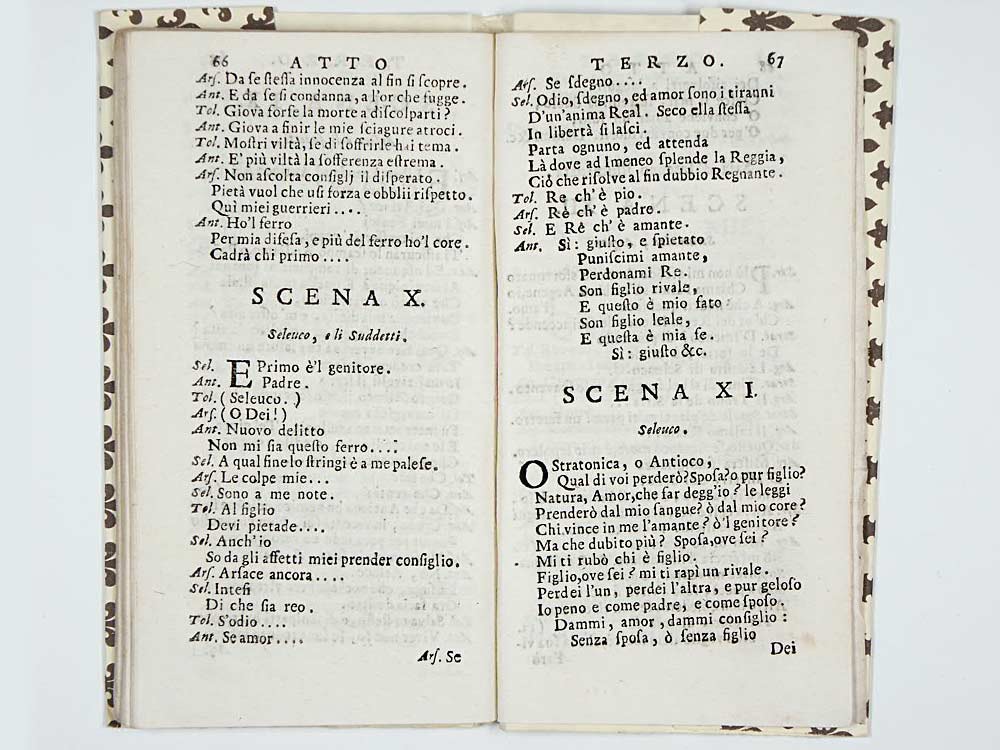 66 ATTO
Arſ. Da ſe ſteſſa innocenza al fin ſi ſcopre.
Ant. E da ſe ſi condanna, a l'or che fugge.
Tol. Giova forſe la morte a diſcolparti?
Ant. Giova a finir le mie ſciagure atroci.
Tol. Moſtri viltà, ſe di ſoffrirle hai tema.
Ant. E' più viltà la ſofferenza eſtrema.
Arſ. Non aſcolta conſiglj il diſperato.
Pietà vuol che uſi forza e obblii riſpetto.
Quì miei guerrieri....
Ant. Ho'l ferro
Per mia difeſa, e più del ferro ho'l core.
Cadrà chi primo....
SCENA X.
Seleuco, e li Suddetti.
Sel. E Primo è'l genitore.
Ant. Padre.
Tol. (Seleuco.)
Arſ. (O Dei!)
Ant. Nuovo delitto
Non mi ſia queſto ferro....
Sel. A qual fine lo ſtringi è a me paleſe.
Arſ. Le colpe mie...
Sel. Sono a me note.
Tol. Al figlio
Devi pietade....
Sel. Anch'io
So da gli affetti miei prender conſiglio.
Arſ. Arſace ancora....
Sel. Inteſi
Di che ſia reo.
Tol. S'odio....
Ant. Se amor....
Arſ. Se
TERZO. 67
Arſ. Se ſdegno....
Sel. Odio, ſdegno, ed amor ſono i tiranni
D'un'anima Real. Seco ella ſteſſa
In libertà ſi laſci.
Parta ognuno, ed attenda
Là dove ad Imeneo ſplende la Reggia,
Ciò che riſolve al fin dubbio Regnante.
Tol. Re ch'è pio.
Arſ. Rè ch'è padre.
Sel. E Rè ch'è amante.
Ant. Sì: giuſto, e ſpietato
Puniſcimi amante,
Perdonami Re.
Son figlio rivale,
E queſto è mio fato:
Son figlio leale,
E queſta è mia fe.
Sì: giuſto &c.
SCENA XI.
Seleuco.
O Stratonica, o Antioco,
Qual di voi perderò? Spoſa? o pur figlio?
Natura, Amor, che far degg'io? le leggi
Prenderò dal mio ſangue? ò dal mio core?
Chi vince in me l'amante? ò'l genitore?
Ma che dubito più? Spoſa, ove ſei?
Mi ti rubò chi è figlio.
Figlio, ove ſei? mi ti rapì un rivale.
Perdei l'un, perdei l'altra, e pur geloſo
Io peno e come padre, e come ſpoſo.
Dammi, amor, dammi conſiglio:
Senza ſpoſa, ò ſenza figlio
Dei